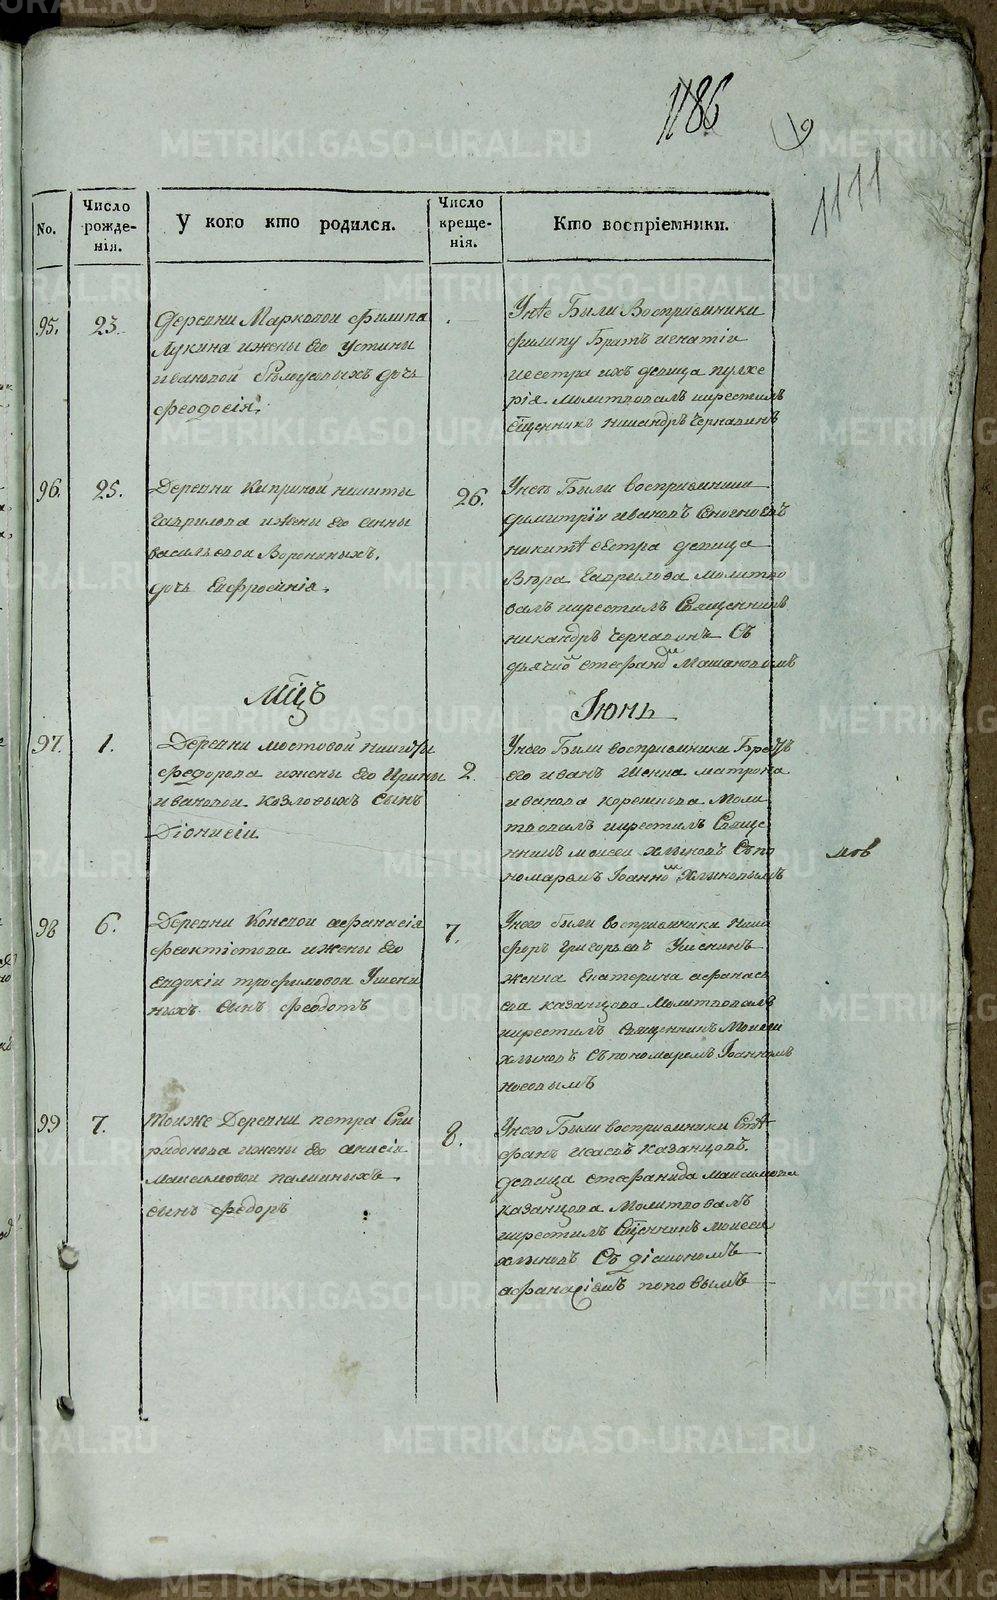 1186
9
1111
No.
Число рожде-нія.
У кого кто родился.
Число креще-нія.
Кто воспріемники.
95.
23.
Деревни Марковой филипа
Лукина ижены Его устины
ивановой
дочь
феодосія.
Унѣе Были Восприемники
филипу Братъ игнатіи
исестра ихъ девица пулхе
рія молитвовалъ икрестилъ
Сщенникъ никандръ Чернавинъ
96.
25.
Деревни Киприной никиты
Гаврилова ижены Его анны
васильевой Ворониныхъ.
дочь Евфросинія.
26.
Унеѣ Были восприемники
димитріи ивановъ
никитѣ сестра девица
Вѣра Гаврилова молитво
валъ икрестилъ Священникъ
никандръ Чернавинъ Съ
дьячко стефаном Машановымъ
Мцъ
Іюнь
97.
1.
Деревни мостовой никиты
федорова ижены Его Ирины
ивановой козловыхъ Сынъ
Діонисіи
2.
Унего Были восприемники Братъ
его иванъ ижена матрона
иванова корешкова Моли
твовалъ икрестилъ Свяще
нникъ моисеи хлыновъ Съпо
номаремъ Іоанном Хлыновымъ
98
6.
Деревни Коневой афанасія
феоктистова ижены Его
Евдокіи трофимовой Ушени
ныхъ Сынъ феодотъ
7.
Унего были восприемники ники
форъ григорьевъ Ушенинъ
женка Екатерина афанась
ева казанцова Молитвовалъ
икрестилъ священникъ Моисеи
хлыновъ Съпономаремъ Іоанномъ
носовымъ
99
7.
Тоиже Деревни петра Спи
ридонова ижены Его анисіи
максимовой палкиныхъ
сынъ федоръ
8.
Унего Были восприемники Сте
фанъ исаевъ казанцовъ.
девица стефанида максимова
казанцова Молитвовалъ
икрестилъ Сщенникъ моисеи
хлыновъ Съ діакономъ
афанасіемъ поповымъ
METRIKI.GASO-URAL.RU